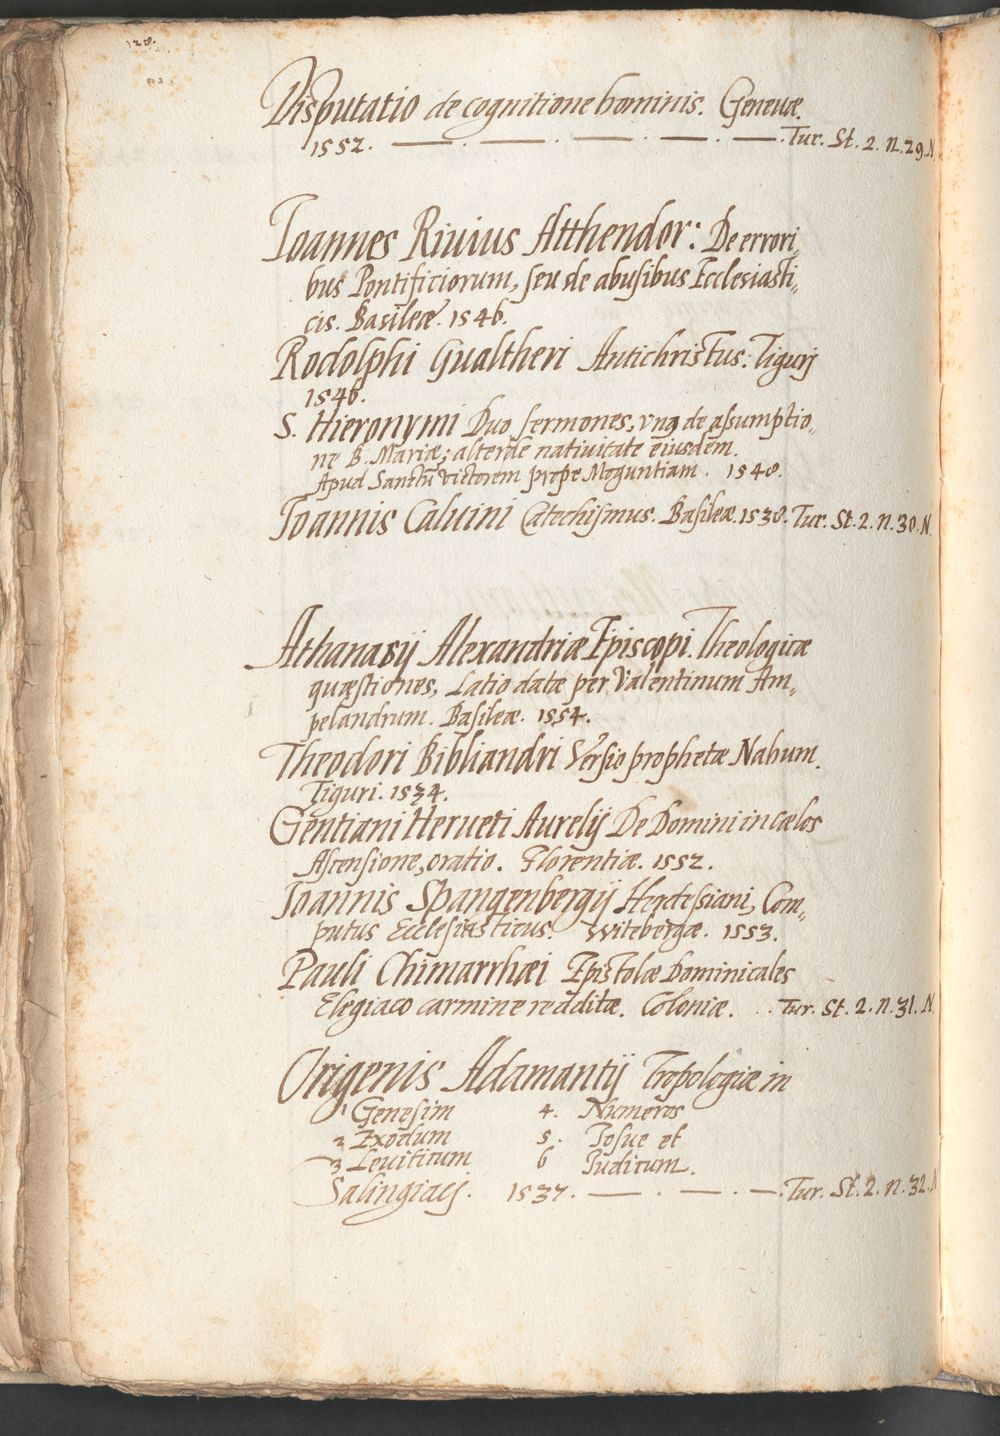 128.
Disputatio de cognitione hominis. Geneuæ.
1552. — . — . — . — . — . Tur. St. 2. n. 29. N
Ioannes Riuius Atthendor: De errori„
bus Pontificiorum, seu de abusibus Ecclesiasti„
cis. Basileæ. 1546.
Rodolphi Gualtheri Antichristus. Tigurj
1546.
S. Hieronymi Duo sermones, vnq de assumptio„
ne B. Mariæ; alter de natiuitate eiusdem.
Apud Sanctũ Victorem prope Moguntiam. 1548.
Ioannis Caluini Catechismus. Basileæ. 1538. Tur. St. 2. n. 30. N.
Athanasij Alexandriæ Episcopi. Theologicæ
quæstiones, Latio datæ per Valentinum Am„
pelandrum. Basileæ. 1554.
Theodori Bibliandri Versio prophetæ Nahum.
Tiguri. 1534.
Gentiani Herueti Aurelij De Domini in cælos
Ascensione, oratio. Florentiæ. 1552.
Ioannis Spangenbergij Herdessiani, Com„
putus Ecclesiasticus. Witebergæ. 1553.
Pauli Chimarrhæi Epistolæ Dominicales
Elegiaco carmine redditæ. Coloniæ. . . Tur. St. 2. n. 31. N
Origenis Adamantij Tropologiæ in
1 Genesim 4. Numeros
2 Exodum 5. Iosue et
3 Leuiticum 6 Iudicum.
Salingiacj. 1537. — . — . — . Tur. St. 2. n. 32. N